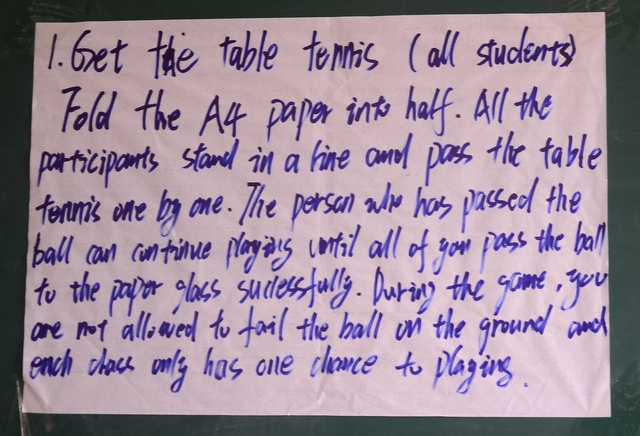 1. Get the table tennis (all students)
Fold the A4 paper into half. All the
participants stand in a line and pass the table
tennis one by one. The person who has passed the
ball can continue playing until all of you pass the ball
to the paper glass sucessfully. During the game, you
are not allowed to fail the ball on the ground and
each class only has one chance to playing.